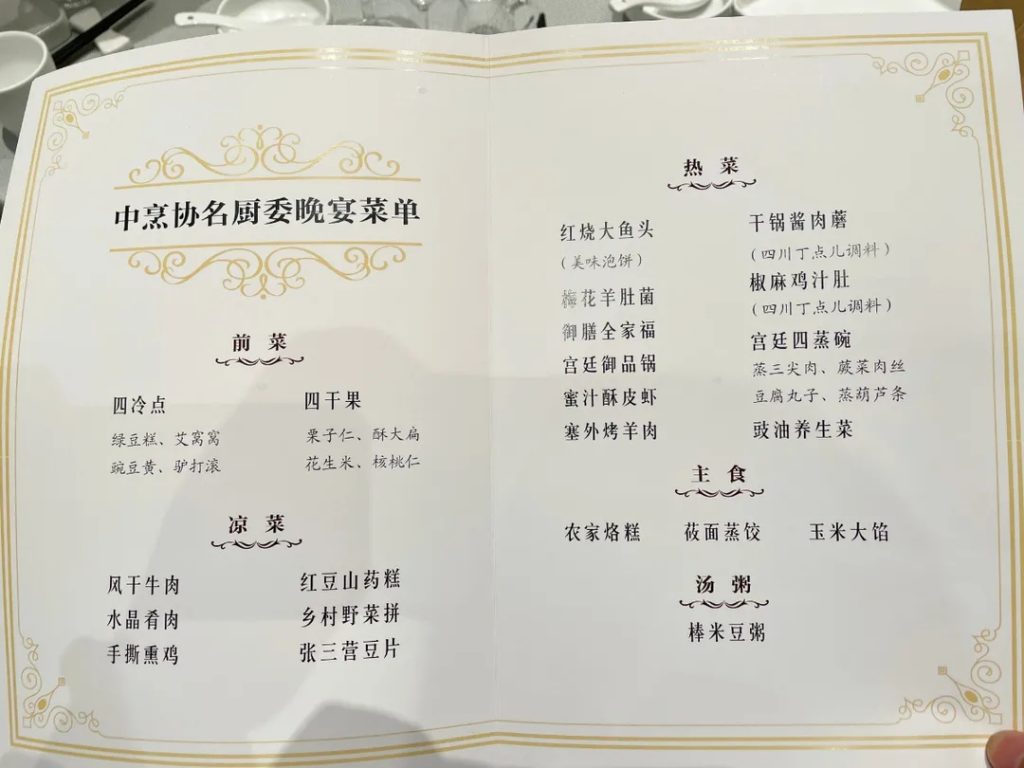 中烹协名厨委晚宴菜单
前 菜
四冷点
绿豆糕、艾窝窝
豌豆黄、驴打滚
四干果
栗子仁、酥大扁
花生米、核桃仁
凉 菜
风干牛肉
水晶肴肉
手撕熏鸡
红豆山药糕
乡村野菜拼
张三营豆片
热 菜
红烧大鱼头
(美味泡饼)
梅花羊肚菌
御膳全家福
宫廷御品锅
蜜汁酥皮虾
塞外烤羊肉
干锅酱肉蘑
(四川丁点儿调料)
椒麻鸡汁肚
(四川丁点儿调料)
宫廷四蒸碗
蒸三尖肉、蕨菜肉丝
豆腐丸子、蒸葫芦条
豉油养生菜
主 食
农家烙糕
莜面蒸饺
玉米大馅
汤 粥
棒米豆粥